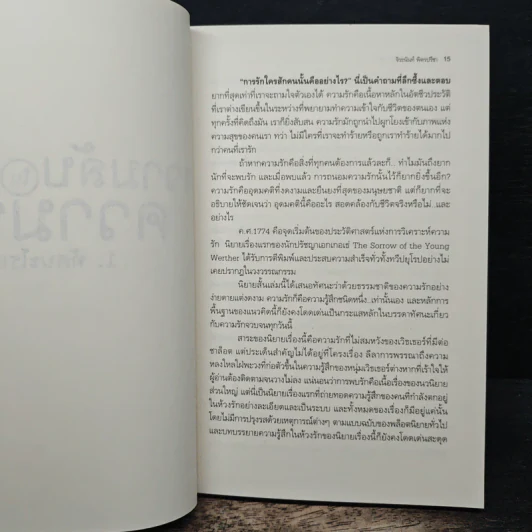 จิระนันท์ พิตรปรีชา 15
"การรักใครสักคนนั้นคืออย่างไร?" นี่เป็นคำถามที่ลึกซึ้งและตอบ
ยากที่สุดเท่าที่เราจะถามใจตัวเองได้ ความรักคือเนื้อหาหลักในอัตชีวประวัติ
ที่เราต่างเขียนขึ้นในระหว่างที่พยายามทำความเข้าใจกับชีวิตของตนเอง แต่
ทุกครั้งที่คิดถึงมัน เราก็ยิ่งสับสน ความรักมักถูกนำไปผูกโยงเข้ากับภาพแห่ง
ความสุขของคนเรา ทว่า ไม่มีใครที่เราจะทำร้ายหรือถูกเราทำร้ายได้มากไป
กว่าคนที่เรารัก
ถ้าหากความรักคือสิ่งที่ทุกคนต้องการแล้วละก็... ทำไมมันถึงยาก
นักที่จะพบรัก และเมื่อพบแล้ว การถนอมความรักนั้นไว้ก็ยากยิ่งขึ้นอีก?
ความรักคืออุดมคติที่งดงามและยืนยงที่สุดของมนุษยชาติ แต่ก็ยากที่จะ
อธิบายให้ชัดเจนว่า อุดมคตินี้คืออะไร สอดคล้องกับชีวิตจริงหรือไม่...และ
อย่างไร
ค.ศ.1774 คือจุดเริ่มต้นของประวัติศาสตร์แห่งการวิเคราะห์ความ
รัก นิยายเรื่องแรกของนักปรัชญาเอกเกอเธ่ The Sorrow of the Young
Werther ได้รับการตีพิมพ์และประสบความสำเร็จทั่วทั้งทวีปยุโรปอย่างไม่
เคยปรากฏในวงวรรณกรรม
นิยายสั้นเล่มนี้ได้เสนอทัศนะว่าด้วยธรรมชาติของความรักอย่าง
ง่ายดายแต่งดงาม ความรักก็คือความรู้สึกชนิดหนึ่ง...เท่านั้นเอง และหลักการ
พื้นฐานของแนวคิดนี้ก็ยังคงโดดเด่นเป็นกระแสหลักในบรรดาทัศนะเกี่ยว
กับความรักจวบจนทุกวันนี้
สาระของนิยายเรื่องนี้คือความรักที่ไม่สมหวังของเวิธเธอร์ที่มีต่อ
ชาล็อต แต่ประเด็นสำคัญไม่ได้อยู่ที่โครงเรื่อง ลีลาการพรรณาถึงความ
หลงใหลใฝ่พะวงที่ก่อตัวขึ้นในความรู้สึกของหนุ่มเวิธเธอร์ต่างหากที่เร้าใจให้
ผู้อ่านต้องติดตามจนวางไม่ลง แน่นอนว่าการพบรักคือเนื้อเรื่องของนวนิยาย
ส่วนใหญ่ แต่นี่เป็นนิยายเรื่องแรกที่ถ่ายทอดความรู้สึกของคนที่กำลังตกอยู่
ในห้วงรักอย่างละเอียดและเป็นระบบ และทั้งหมดของเรื่องก็มีอยู่แค่นั้น
โดยไม่มีการปรุงรสด้วยเหตุการณ์ต่างๆ ตามแบบฉบับของพล็อตนิยายทั่วไป
และบทบรรยายความรู้สึกในห้วงรักของนิยายเรื่องนี้ก็ยังคงโดดเด่นสะดุด